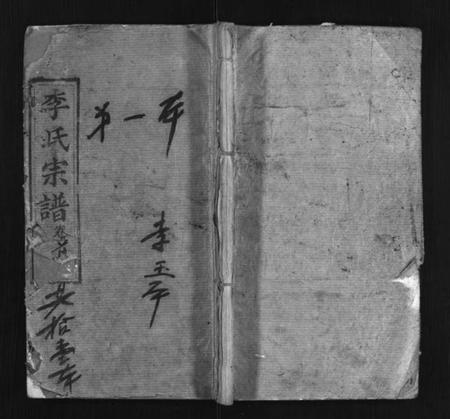 李氏宗譜
卷首
共拾壹本
第一本
李玉平